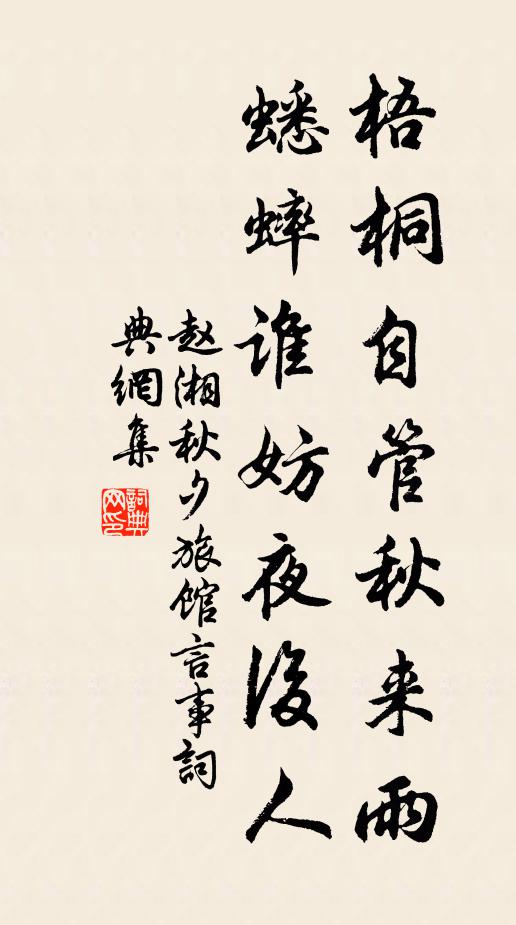 梧桐自管秋来雨
蟋蟀谁妨夜後人
赵湘秋夕旅馆言事詞
典網集
詞典网印